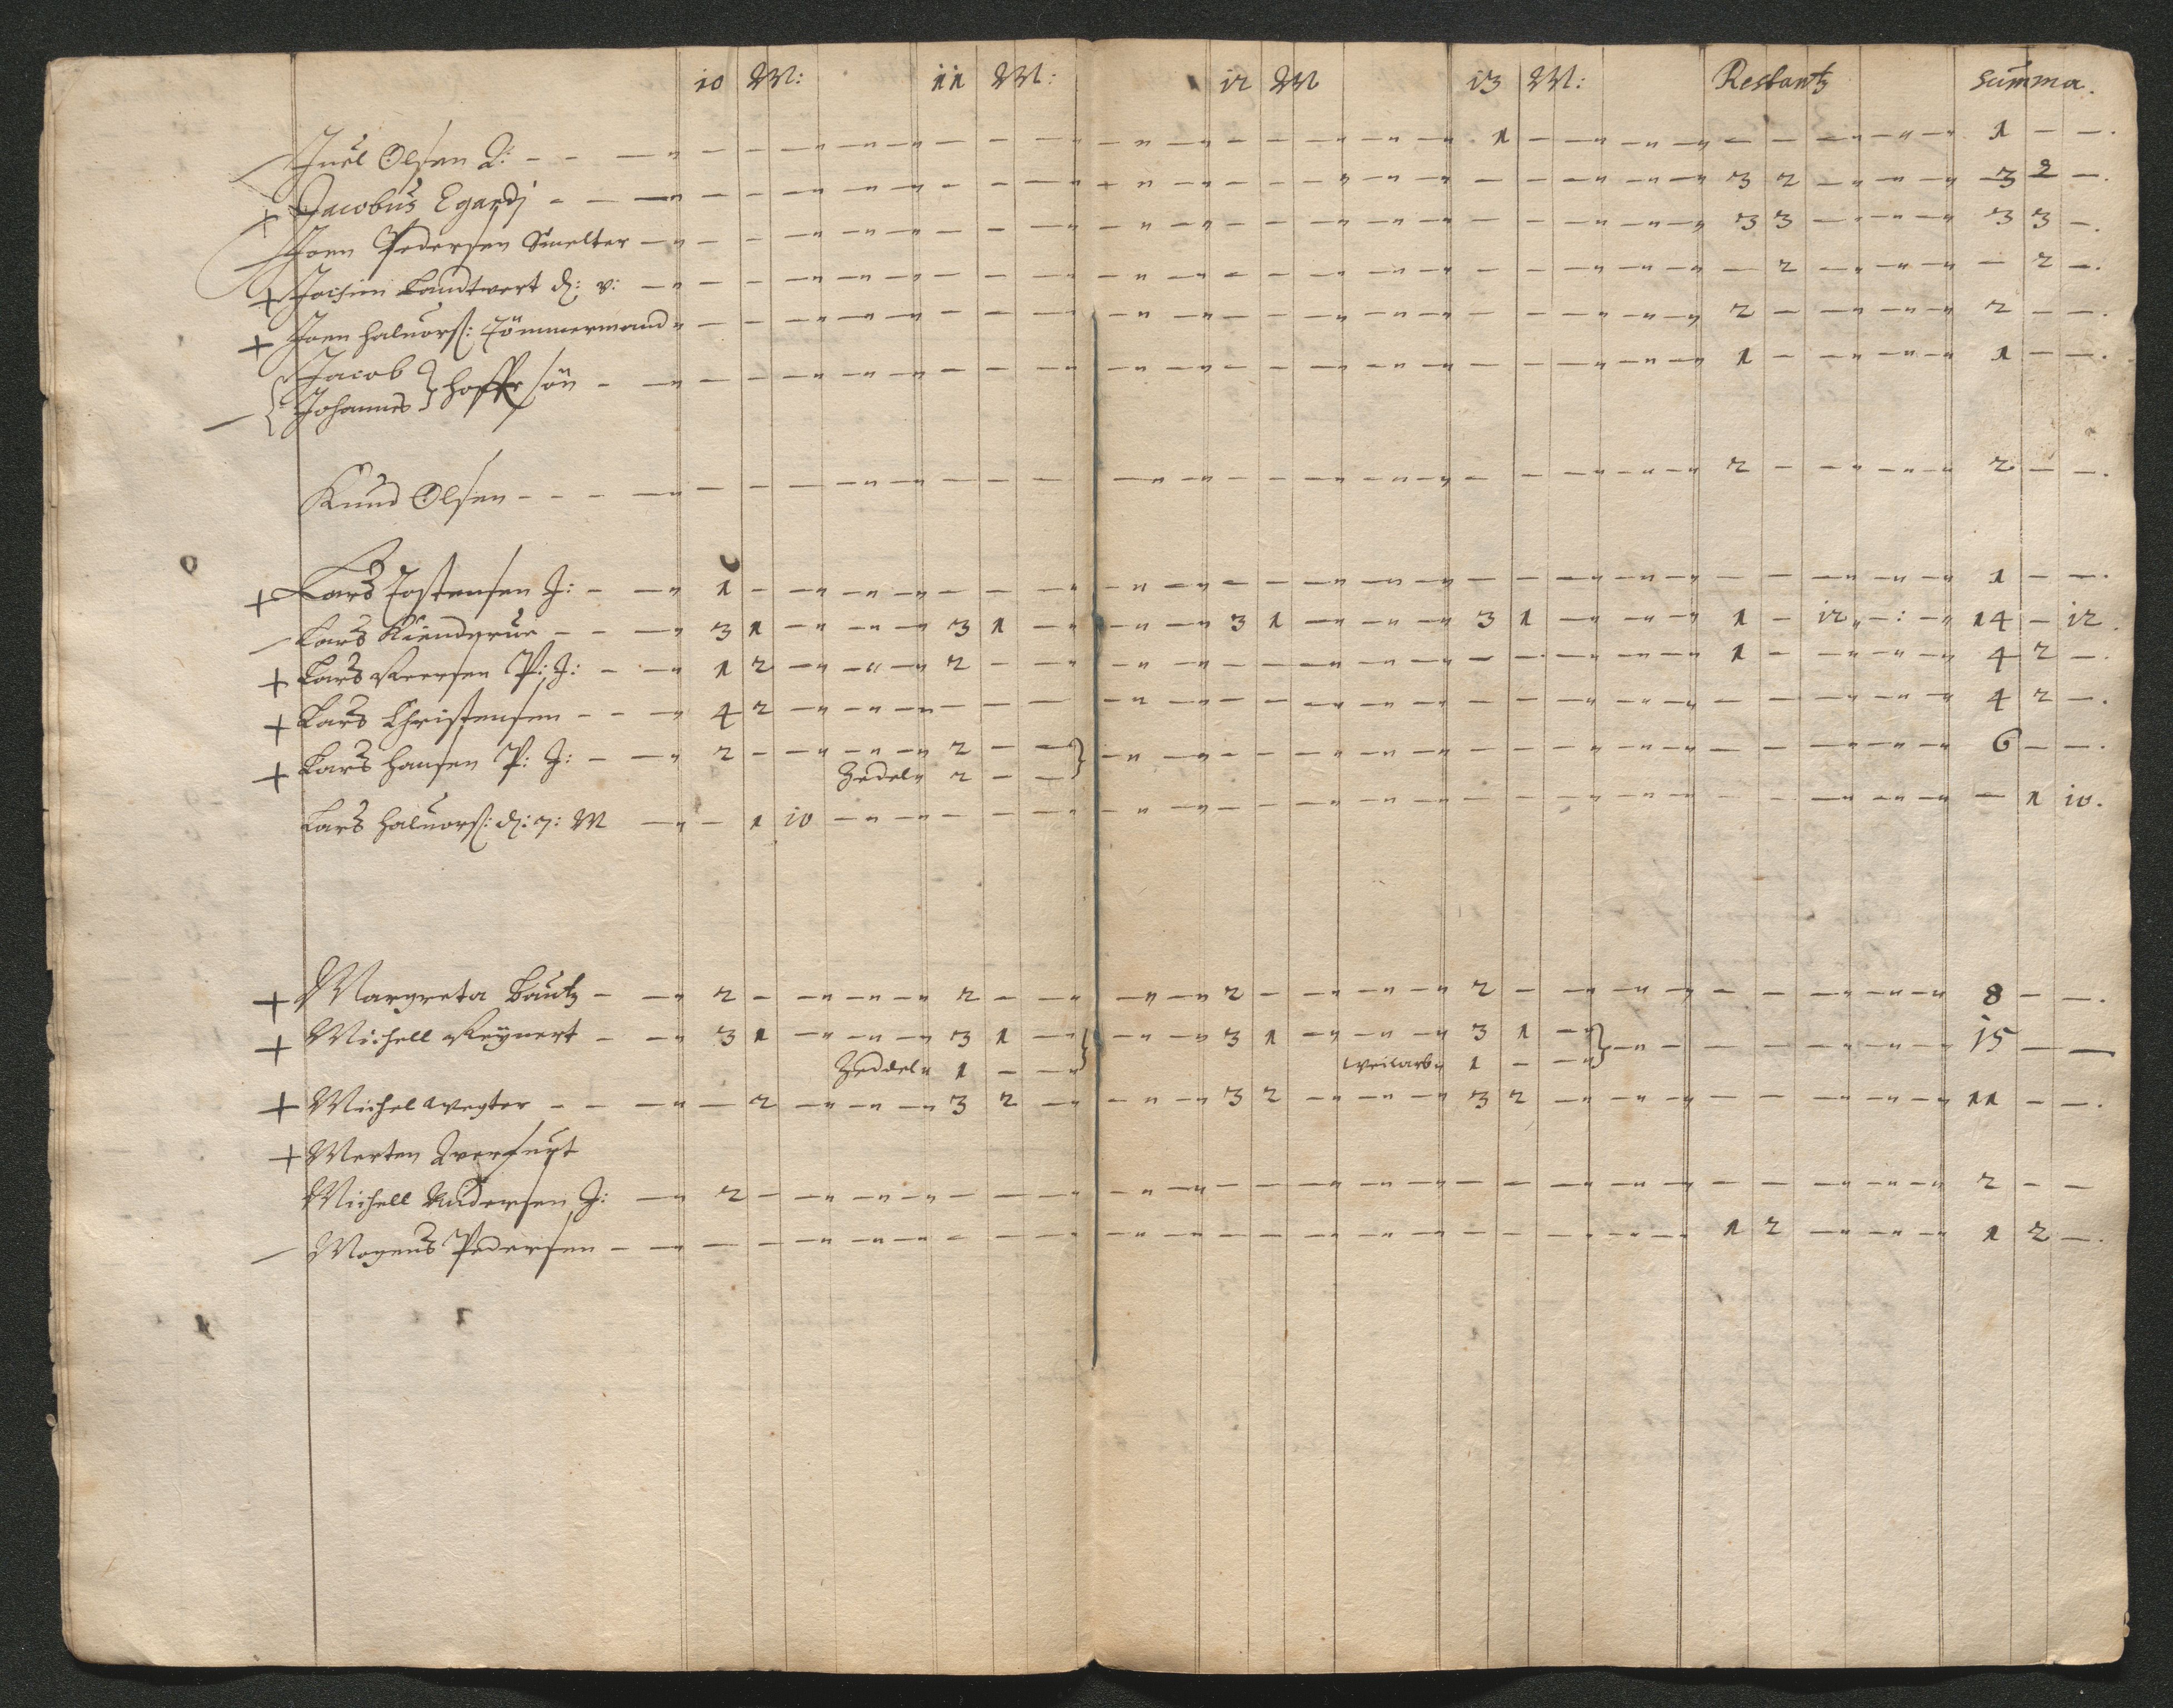 10 M: 11 M: 12 M 13 M: Restantz Summa.
Juel Olsen 2: - - - " 1 - - 1 - -.
+ Jacobus Egardj - - - " 3 2 - 3 2 -.
Joen Pedersen Smelter - " 3 3 - 3 3 -.
+ Jochim Landtwert d: v: - " - 2 - - 2 -.
+ Joen Haluors: Tömmermand " 2 - - 2 - -.
Jacob
Johannes } Hoffr sön - - " 1 - - 1 - -.
Knud Olsen - - - - " 2 - - 2 - -.
+ Lars Tostensen J: - - " 1 - - 1 - -.
- Lars Kiendrue - - - " 3 1 - 3 1 - 3 1 - 3 1 - 1 - 12 14 - 12.
+ Lars P: J: - - " 1 2 - 2 - - 1 - - 4 2 -.
+ Lars Christensen - - - " 4 2 - 4 2 -.
+ Lars Hansen P: J: - - " 2 - - 2 - - } 6 - -.
Zedel " 2 - -
Lars Haluors: d: 7: M - " - 1 10 - 1 10.
+ Margreta Bautz - - " 2 - - 2 - - 2 - - 2 - - 8 - -.
+ Michell Reÿnert - - " 3 1 - 3 1 - } 3 1 - 3 1 - } 15 - -
Zeddel " 1 - - 1 - -
+ Michel Wegter - - - " - 2 - 3 2 - 3 2 - 3 2 - 11 - -.
+ Merten
Michell Andersen J: - " 2 - - 2 - -
- Mogens Pedersen - - " 1 2 - 1 2 -.